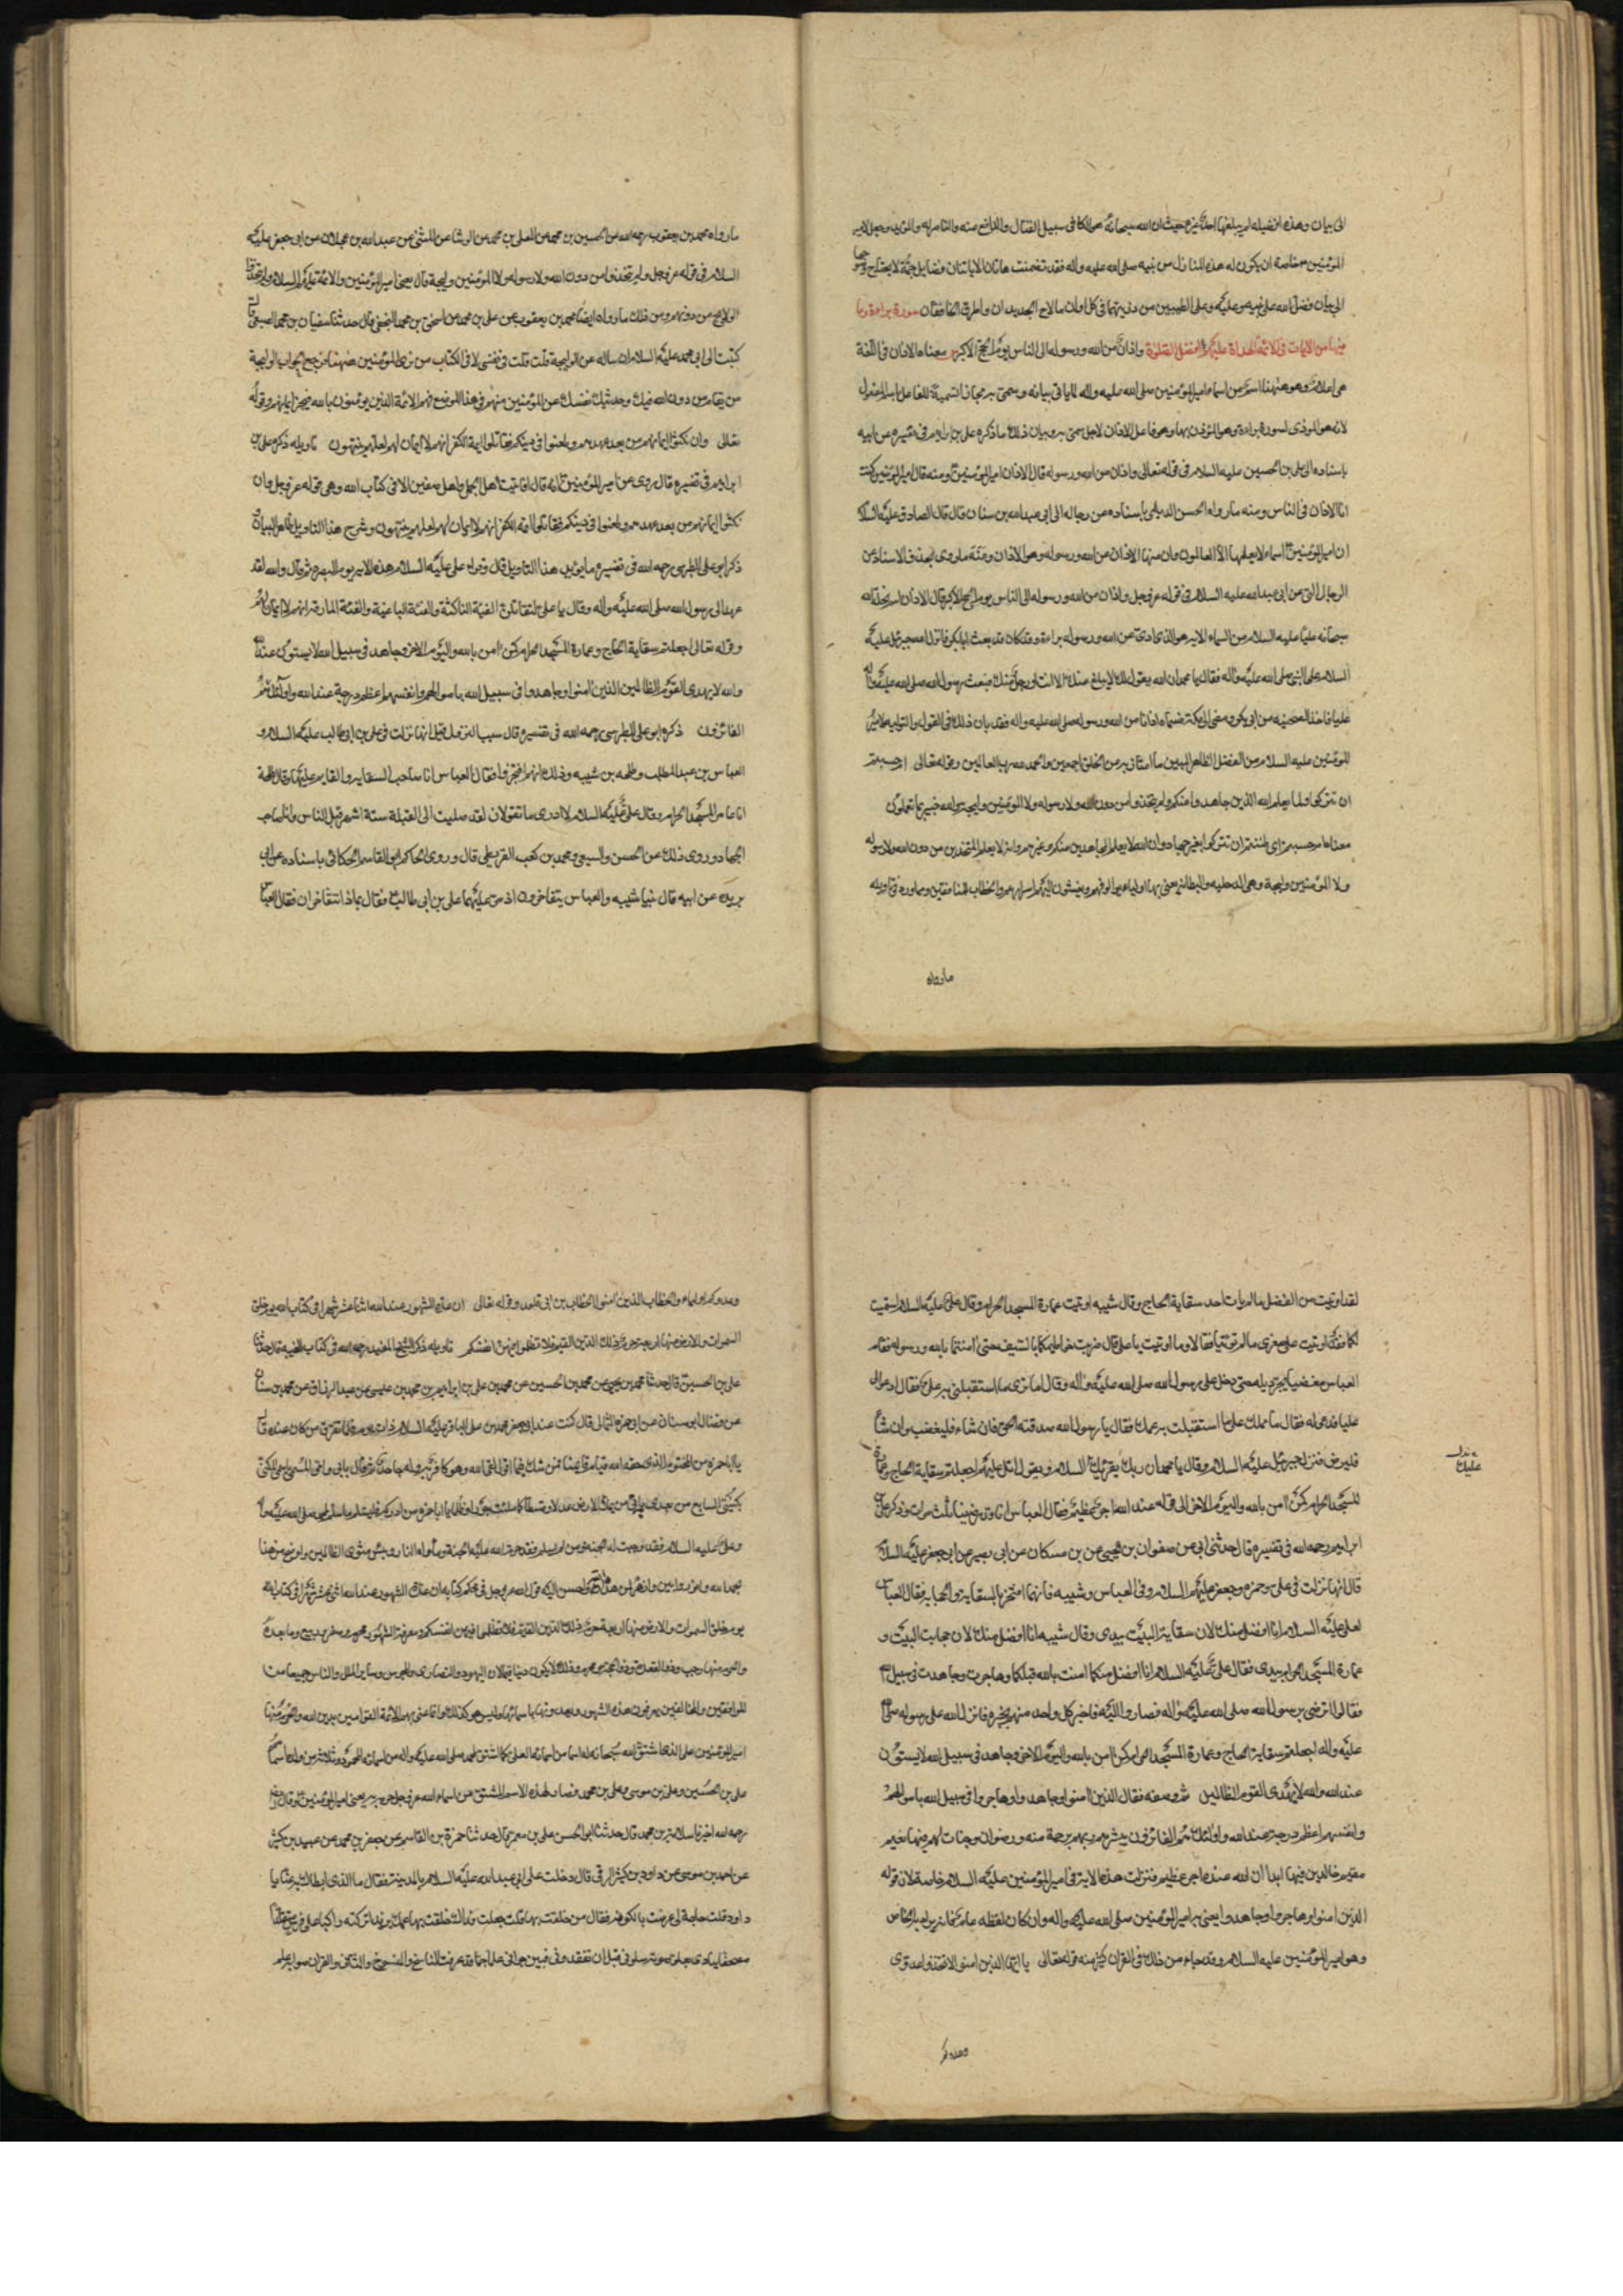 الى بيان وهذه افضيله لم يبلغها احد غيره حيث ان الله سبحانه هو الكافى سبيل القتال والدافع عنه والناصر له والمؤيد وجعل الامير
المؤمنين خاصة ان يكون له هذه المنازل من نبيه صلى الله عليه واله فقد تضمنت هاتان الايتان فضايل جمة لا يحتاج وضوحها
الى بيان فضل الله على نبيه وعليه وعلى الطيبين من ذريتهما فى كل اوان ما لاح الجديدان واطرق الخافقان سورة براءة وما
فيها من الايات فى الائمة الهداة عليهم افضل الصلوة واذان من الله ورسوله الى الناس يوم الحج الاكبر معناه الاذان فى اللغة
هى اعلام وهو ههنا اسم من اسماء امير المؤمنين صلى الله عليه واله لما ياتى بيانه وسمى به مجازا تسمية للفاعل باسم المفعول
لانه هو المؤذى لسورة براءة وهو المؤذن بها وهو فاعل الاذان لاجل سمى به وبيان ذلك ما ذكره على بن ابراهيم فى تفسيره عن ابيه
باسناده الى على بن الحسين عليه السلام فى قوله تعالى واذان من الله ورسوله قال الاذان امير المؤمنين ومنه قال امير المؤمنين كنت
انا الاذان فى الناس ومنه ما رواه الحسن الديلمى باسناده عن رجاله الى ابى عبد الله بن سنان قال قال الصادق عليه السلام
ان امير المؤمنين اسماء لا يعلمها الا العالمون وان منها الاذان من الله ورسوله وهو الاذان ومنه ما روى بحذف الاسناد عن
الرجال الى عن ابى عبد الله عليه السلام فى قوله عز وجل واذان من الله ورسوله الى الناس يوم الحج الاكبر قال الاذان اسم نحله الله
سبحانه عليا عليه السلام من السماء الاية هو الذى ادى عن الله ورسوله براءة وقد كان قد بعث ابا بكر فانزل الله جبرئيل عليه
السلام على النبى صلى الله عليه واله فقال يا محمد ان الله يقول لك لا يبلغ عنك الا انت او رجل منك فبعث رسول الله صلى الله عليه واله
عليا فاخذ الصحيفة من ابى بكر ومضى الى مكة فسماه اذانا من الله ورسوله صلى الله عليه واله فقد بان ذلك فى القول والتوليه لامير
المؤمنين عليه السلام من الفضل الظاهر المبين ما امتاز به من الخلق اجمعين والحمد لله رب العالمين وقوله تعالى ام حسبتم
ان تتركوا ولما يعلم الله الذين جاهدوا منكم ولم يتخذوا من دون الله ولا رسوله ولا المؤمنين وليجة والله خبير بما تعملون
معناه ام حسبتم اى ظننتم ان تتركوا بغير جهاد وان الله لا يعلم المجاهدين منكم وغيرهم وانه لا يعلم المتخذين من دون الله ولا رسوله
ولا المؤمنين وليجة وهى الدخيلة والبطانة يعنى بها اولياء يوالونهم ويفشون اليهم اسرارهم والخطاب للمنافقين ومما ورد فى تاويله
ما رواه
ما رواه محمد بن يعقوب رحمه الله عن الحسين بن محمد عن المعلى بن محمد عن الوشا عن المثنى عن عبد الله بن عجلان عن ابى جعفر عليه
السلام فى قوله عز وجل ولم يتخذوا من دون الله ولا رسوله ولا المؤمنين وليجة قال يعنى امير المؤمنين والائمة عليهم السلام ولم يتخذوا
الولايج من دونهم ومن ذلك ما رواه ايضا محمد بن يعقوب عن على بن محمد عن اسحق بن محمد النخعى قال حدثنا سفيان بن محمد الصبعى قال
كتبت الى ابى محمد عليه السلام ان ساله عن الوليجة قلت فى نفسى لا فى الكتاب من ترى المؤمنين ههنا فرجع الجواب الوليجة
من يقام من دون الله فيك وحدثتك نفسك عن المؤمنين منهم فى هذا الموضع فهم الائمة الذين يؤمنون بالله فيجيز ايمانهم وقوله
تعالى وان نكثوا ايمانهم من بعد عهدهم وطعنوا فى دينكم فقاتلوا ايمة الكفر انهم لا ايمان لهم لعلهم ينتهون تاويله ذكره على بن
ابراهيم فى تفسيره قال روى عن امير المؤمنين انه قال ما قاتلت اهل الجمل واهل صفين الا فى كتاب الله وهى قوله عز وجل وان
نكثوا ايمانهم من بعد عهدهم وطعنوا فى دينكم فقاتلوا ائمة الكفر انهم لا ايمان لهم لعلهم ينتهون وشرح هذا التاويل ظاهر البيان
ذكر ابو على الطبرسى رحمه الله فى تفسيره ما يؤيد هذا التاويل قال وقراء على عليه السلام هذه الاية يوم البصرة ثم قال والله لقد
عهد الى رسول الله صلى الله عليه واله وقال يا على لتقاتلن الفئة الناكثة والفئة الباغية والفئة المارقة انهم لا ايمان لهم
وقوله تعالى اجعلتم سقاية الحاج وعمارة المسجد الحرام كمن امن بالله واليوم الاخر وجاهد فى سبيل الله لا يستوون عند الله
والله لا يهدى القوم الظالمين الذين امنوا وجاهدوا فى سبيل الله باموالهم وانفسهم اعظم درجة عند الله واولئك هم
الفائزون ذكره ابو على الطبرسى رحمه الله فى تفسيره قال سبب النزول قيل انها نزلت فى على بن ابى طالب عليهما السلام و
العباس بن عبد المطلب وطلحه بن شيبه وذلك انهم افتخروا فقال العباس انا صاحب السقاية والقايم عليها وقال طلحة
انا عامر المسجد الحرام وقال على عليه السلام لا ادرى ما تقولان لقد صليت الى القبلة ستة اشهر قبل الناس وانا صاحب
الجهاد وروى ذلك عن الحسن والشعبى ومحمد بن كعب القرظى قال وروى الحاكم ابو القاسم الحسكانى باسناده عن ابى
بريدة عن ابيه قال بينا شيبه والعباس يتفاخرون اذ مر عليهما على بن ابى طالب فقال بماذا تتفاخران فقال العباس
لقد اوتيت من الفضل ما لم يات احد سقاية الحاج وقال شيبه اوتيت عمارة المسجد الحرام وقال على عليه السلام استحييت
لكما فقد اوتيت على صغرى ما لم تؤتيا فقالا وما اوتيت يا على قال ضربت خراطيمكما بالسيف حتى امنتما بالله ورسوله فقام
العباس مغضبا يجر ذيله حتى دخل على رسول الله صلى الله عليه واله وقال اما ترى ما استقبلنى به على فقال ادعوا لى
عليا فدعى له فقال ما حملك على ما استقبلت به عمك فقال يا رسول الله صدقته الحق فان شاء فليغضب وان شاء
فليرض فنزل جبرئيل عليه السلام وقال يا محمد ان ربك يقرئك السلام ويقول اتل عليهم اجعلتم سقاية الحاج وعمارة
المسجد الحرام كمن امن بالله واليوم الاخر الى قوله عند الله اجر عظيم فقال العباس انا قد رضينا ثلث مرات وذكر على بن
ابراهيم رحمه الله فى تفسيره قال حدثنى ابى عن صفوان بن يحيى عن بن مسكان عن ابى بصير عن ابى جعفر عليه السلام
قال انها نزلت فى على وحمزه وجعفر عليهم السلام وفى العباس وشيبه فانهما افتخرا بالسقاية والحجابة فقال العباس
لعلى عليه السلام انا افضل منك لان سقاية البيت بيدى وقال شيبه انا افضل منك لان حجابة البيت و
عمارة المسجد الحرام بيدى فقال على عليه السلام انا افضل منكما امنت بالله قبلكما وهاجرت وجاهدت فى سبيل الله
فقالوا نرضى برسول الله صلى الله عليه واله فصاروا اليه فاخبر كل واحد منهم بخبره فانزل الله على رسوله صلى الله
عليه واله اجعلتم سقاية الحاج وعمارة المسجد الحرام كمن امن بالله واليوم الاخر وجاهد فى سبيل الله لا يستوون
عند الله والله لا يهدى القوم الظالمين ثم وصفه فقال الذين امنوا وجاهدوا وهاجروا فى سبيل الله باموالهم
وانفسهم اعظم درجة عند الله واولئك هم الفائزون يبشرهم ربهم برحمة منه ورضوان وجنات لهم فيها نعيم
مقيم خالدين فيها ابدا ان الله عنده اجر عظيم فنزلت هذه الاية فى امير المؤمنين عليه السلام خاصة لان قوله
الذين امنوا وهاجروا وجاهدوا يعنى به امير المؤمنين صلى الله عليه واله وان كان لفظه عام فانه يراد به الخاص
وهو امير المؤمنين عليه السلام وقد جاء من ذلك فى القران كثير منه قوله تعالى يا ايها الذين امنوا لا تتخذوا عدوى
عليك
وعدوكم
وعدوكم اولياء والخطاب الذين امنوا لحاطب بن ابى بلتعه وقوله تعالى ان عدة الشهور عند الله اثنا عشر شهرا فى كتاب الله يوم خلق
السموات والارض منها اربعة حرم ذلك الدين القيم فلا تظلموا فيهن انفسكم تاويله ذكر الشيخ المفيد رحمه الله فى كتاب الغيبة قال حدثنا
على بن الحسين قال حدثنا محمد بن يحيى عن محمد بن الحسين عن محمد بن على بن ابراهيم بن محمد بن عيسى عن عبد الرزاق عن محمد بن سنان
عن فضال ابو سنان عن ابى حمزه الثمالى قال كنت عند ابى جعفر محمد بن على الباقر عليه السلام ذات يوم فلما تفرق من كان عنده قال
يا ابا حمزه من المحتوم الذى حتمه الله قيام قايمنا فمن شك فيما اقول لقى الله وهو كافر به وله جاحد ثم قال بابى وامى المسمى باسمى المكنى
بكنيتى السابع من بعدى ياتى من يملا الارض عدلا وقسطا كما ملئت جورا وظلما يا ابا حمزه من ادركه فليسلم له ما سلم لمحمد صلى الله عليه واله
وعلى عليه السلام فقد وجبت له الجنة ومن لم يسلم فقد حرم الله عليه الجنة وماواه النار وبئس مثوى الظالمين واوضح من هذا
بحمد الله وانور وابين وازهر لمن هداه واحسن اليه قول الله عز وجل فى محكم كتابه ان عدة الشهور عند الله اثنى عشر شهرا فى كتاب الله
يوم خلق السموات والارض منها اربعة حرم ذلك الدين القيم فلا تظلموا فيهن انفسكم ومعرفة الشهور محرم وصفر وربيع وما بعده
والحرم منها رجب وذو القعدة وذو الحجة ومحرم وذلك لا يكون دينا قيما لان اليهود والنصارى والمجوس وساير الملل والناس جميعا من
الموافقين والمخالفين يعرفون هذه الشهور ويعدونها باسمائها وليس هو كذلك وانما عنى بهم الائمة القوامين بدين الله والحرم منها
امير المؤمنين على الذى اشتق الله سبحانه له اسما من اسمائه العلى كما اشتق لمحمد صلى الله عليه واله من اسمائه المحمود وثلاثة من ولده اسماؤهم
على بن الحسين وعلى بن موسى وعلى بن محمد فصار لهذا الاسم المشتق من اسماء الله عز وجل حرمة به يعنى امير المؤمنين وقال ايضا
رحمه الله اخبرنا سلامة بن محمد قال حدثنا ابو الحسن على بن معمر قال حدثنا حمزة بن القاسم عن جعفر بن محمد عن عبيد بن كثير
عن احمد بن موسى عن داود بن كثير الرقى قال دخلت على ابى عبد الله عليه السلام بالمدينة فقال ما الذى ابطاك عنا يا
داود قلت حاجة لى عرضت بالكوفة فقال من خلفت بها قلت جعلت فداك خلفت بها عمك زيدا تركته راكبا على فرس متقلدا
مصحفا ينادى بعلو صوته سلونى قبل ان تفقدونى فبين جوانحى علما جما قد عرفت الناسخ والمنسوخ والمثانى والقران